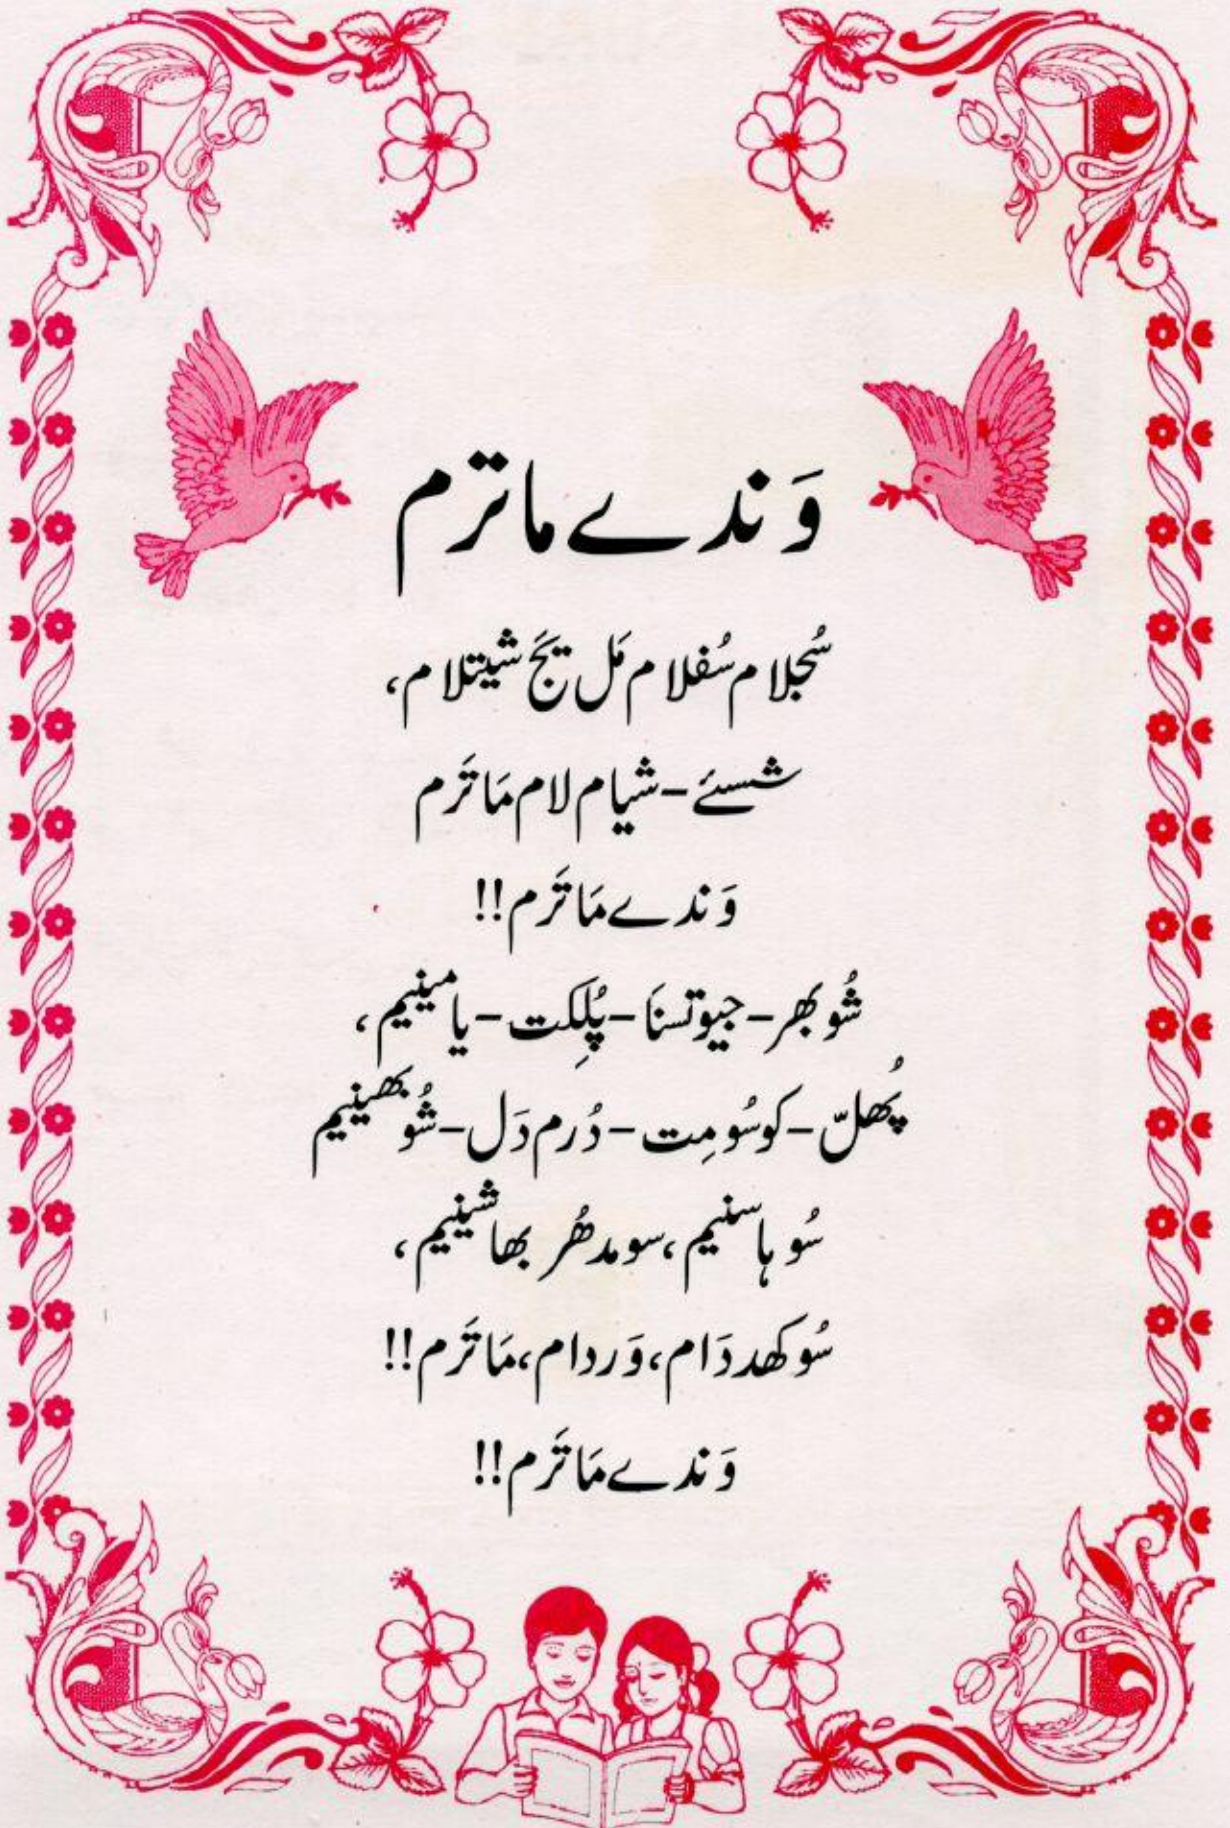 وَندے ماترم
سُجلام سُفلام مَل یَج شیتلام،
شسئے-شیام لام مَاتَرم
وَندے مَاتَرم!!
شُوبھر-جیوتسنَا-پُلکِت-یامینیم،
پُھلّ-کوسُومِت-دُرم دَل-شُوبھینیم
سُوہاسنیم،سومدھُر بھاشینیم،
سُوکھددَام،وَردام،مَاتَرم!!
وَندے مَاتَرم!!